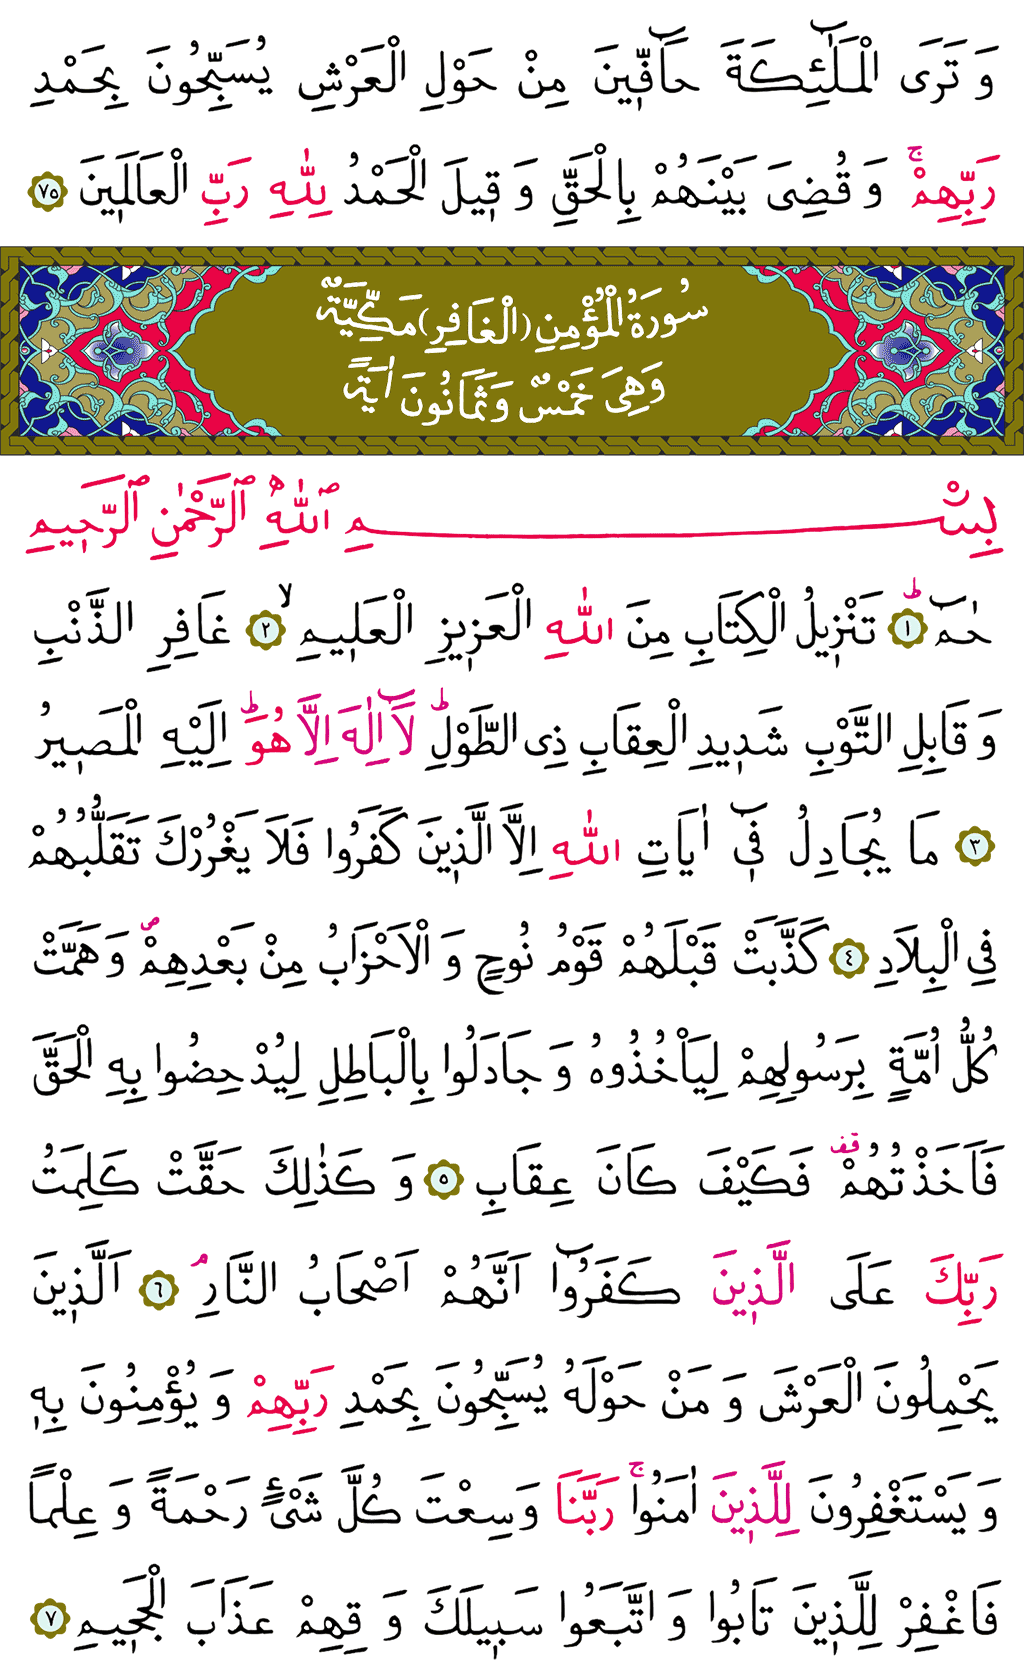 وَ تَرَى الْمَلٰٓئِكَةَ حَآفّ۪ينَ مِنْ حَوْلِ الْعَرْشِ يُسَبِّحُونَ بِحَمْدِ
رَبِّهِمْۚ وَ قُضِىَ بَيْنَهُمْ بِالْحَقِّ وَ ق۪يلَ الْحَمْدُ لِلّٰهِ رَبِّ الْعَالَم۪ينَ ﴿٧٥﴾
سُورَةُ الْمُؤْمِنِ (الْغَافِرِ) مَكِّيَّةٌ
وَهِىَ خَمْسٌ وَثَمَانُونَ اٰيَةً
بِسْــــــمِ ٱللّٰهِ ٱلرَّحْمٰنِ ٱلرَّح۪يمِ
حٰمٓ ﴿١﴾ۜ تَنْز۪يلُ الْكِتَابِ مِنَ اللّٰهِ الْعَز۪يزِ الْعَل۪يمِۙ ﴿٢﴾ غَافِرِ الذَّنْبِ
وَ قَابِلِ التَّوْبِ شَد۪يدِ الْعِقَابِ ذِى الطَّوْلِۜ لَٓا اِلٰهَ اِلَّا هُوَۜ اِلَيْهِ الْمَص۪يرُ
﴿٣﴾ مَا يُجَادِلُ ف۪ٓى اٰيَاتِ اللّٰهِ اِلَّا الَّذ۪ينَ كَفَرُوا فَلَا يَغْرُرْكَ تَقَلُّبُهُمْ
فِى الْبِلَادِ ﴿٤﴾ كَذَّبَتْ قَبْلَهُمْ قَوْمُ نُوحٍ وَ الْاَحْزَابُ مِنْ بَعْدِهِمْۖ وَ هَمَّتْ
كُلُّ اُمَّةٍ بِرَسُولِهِمْ لِيَاْخُذُوهُ وَ جَادَلُوا بِالْبَاطِلِ لِيُدْحِضُوا بِهِ الْحَقَّ
فَاَخَذْتُهُمْ قف فَكَيْفَ كَانَ عِقَابِ ﴿٥﴾ وَ كَذٰلِكَ حَقَّتْ كَلِمَتُ
رَبِّكَ عَلَى الَّذ۪ينَ كَفَرُٓوا اَنَّهُمْ اَصْحَابُ النَّارِۢ ﴿٦﴾ اَلَّذ۪ينَ
يَحْمِلُونَ الْعَرْشَ وَ مَنْ حَوْلَهُ يُسَبِّحُونَ بِحَمْدِ رَبِّهِمْ وَ يُؤْمِنُونَ بِه۪
وَ يَسْتَغْفِرُونَ لِلَّذ۪ينَ اٰمَنُواۚ رَبَّنَا وَسِعْتَ كُلَّ شَىْءٍ رَحْمَةً وَ عِلْمًا
فَاغْفِرْ لِلَّذ۪ينَ تَابُوا وَ اتَّبَعُوا سَب۪يلَكَ وَ قِهِمْ عَذَابَ الْجَح۪يمِ ﴿٧﴾